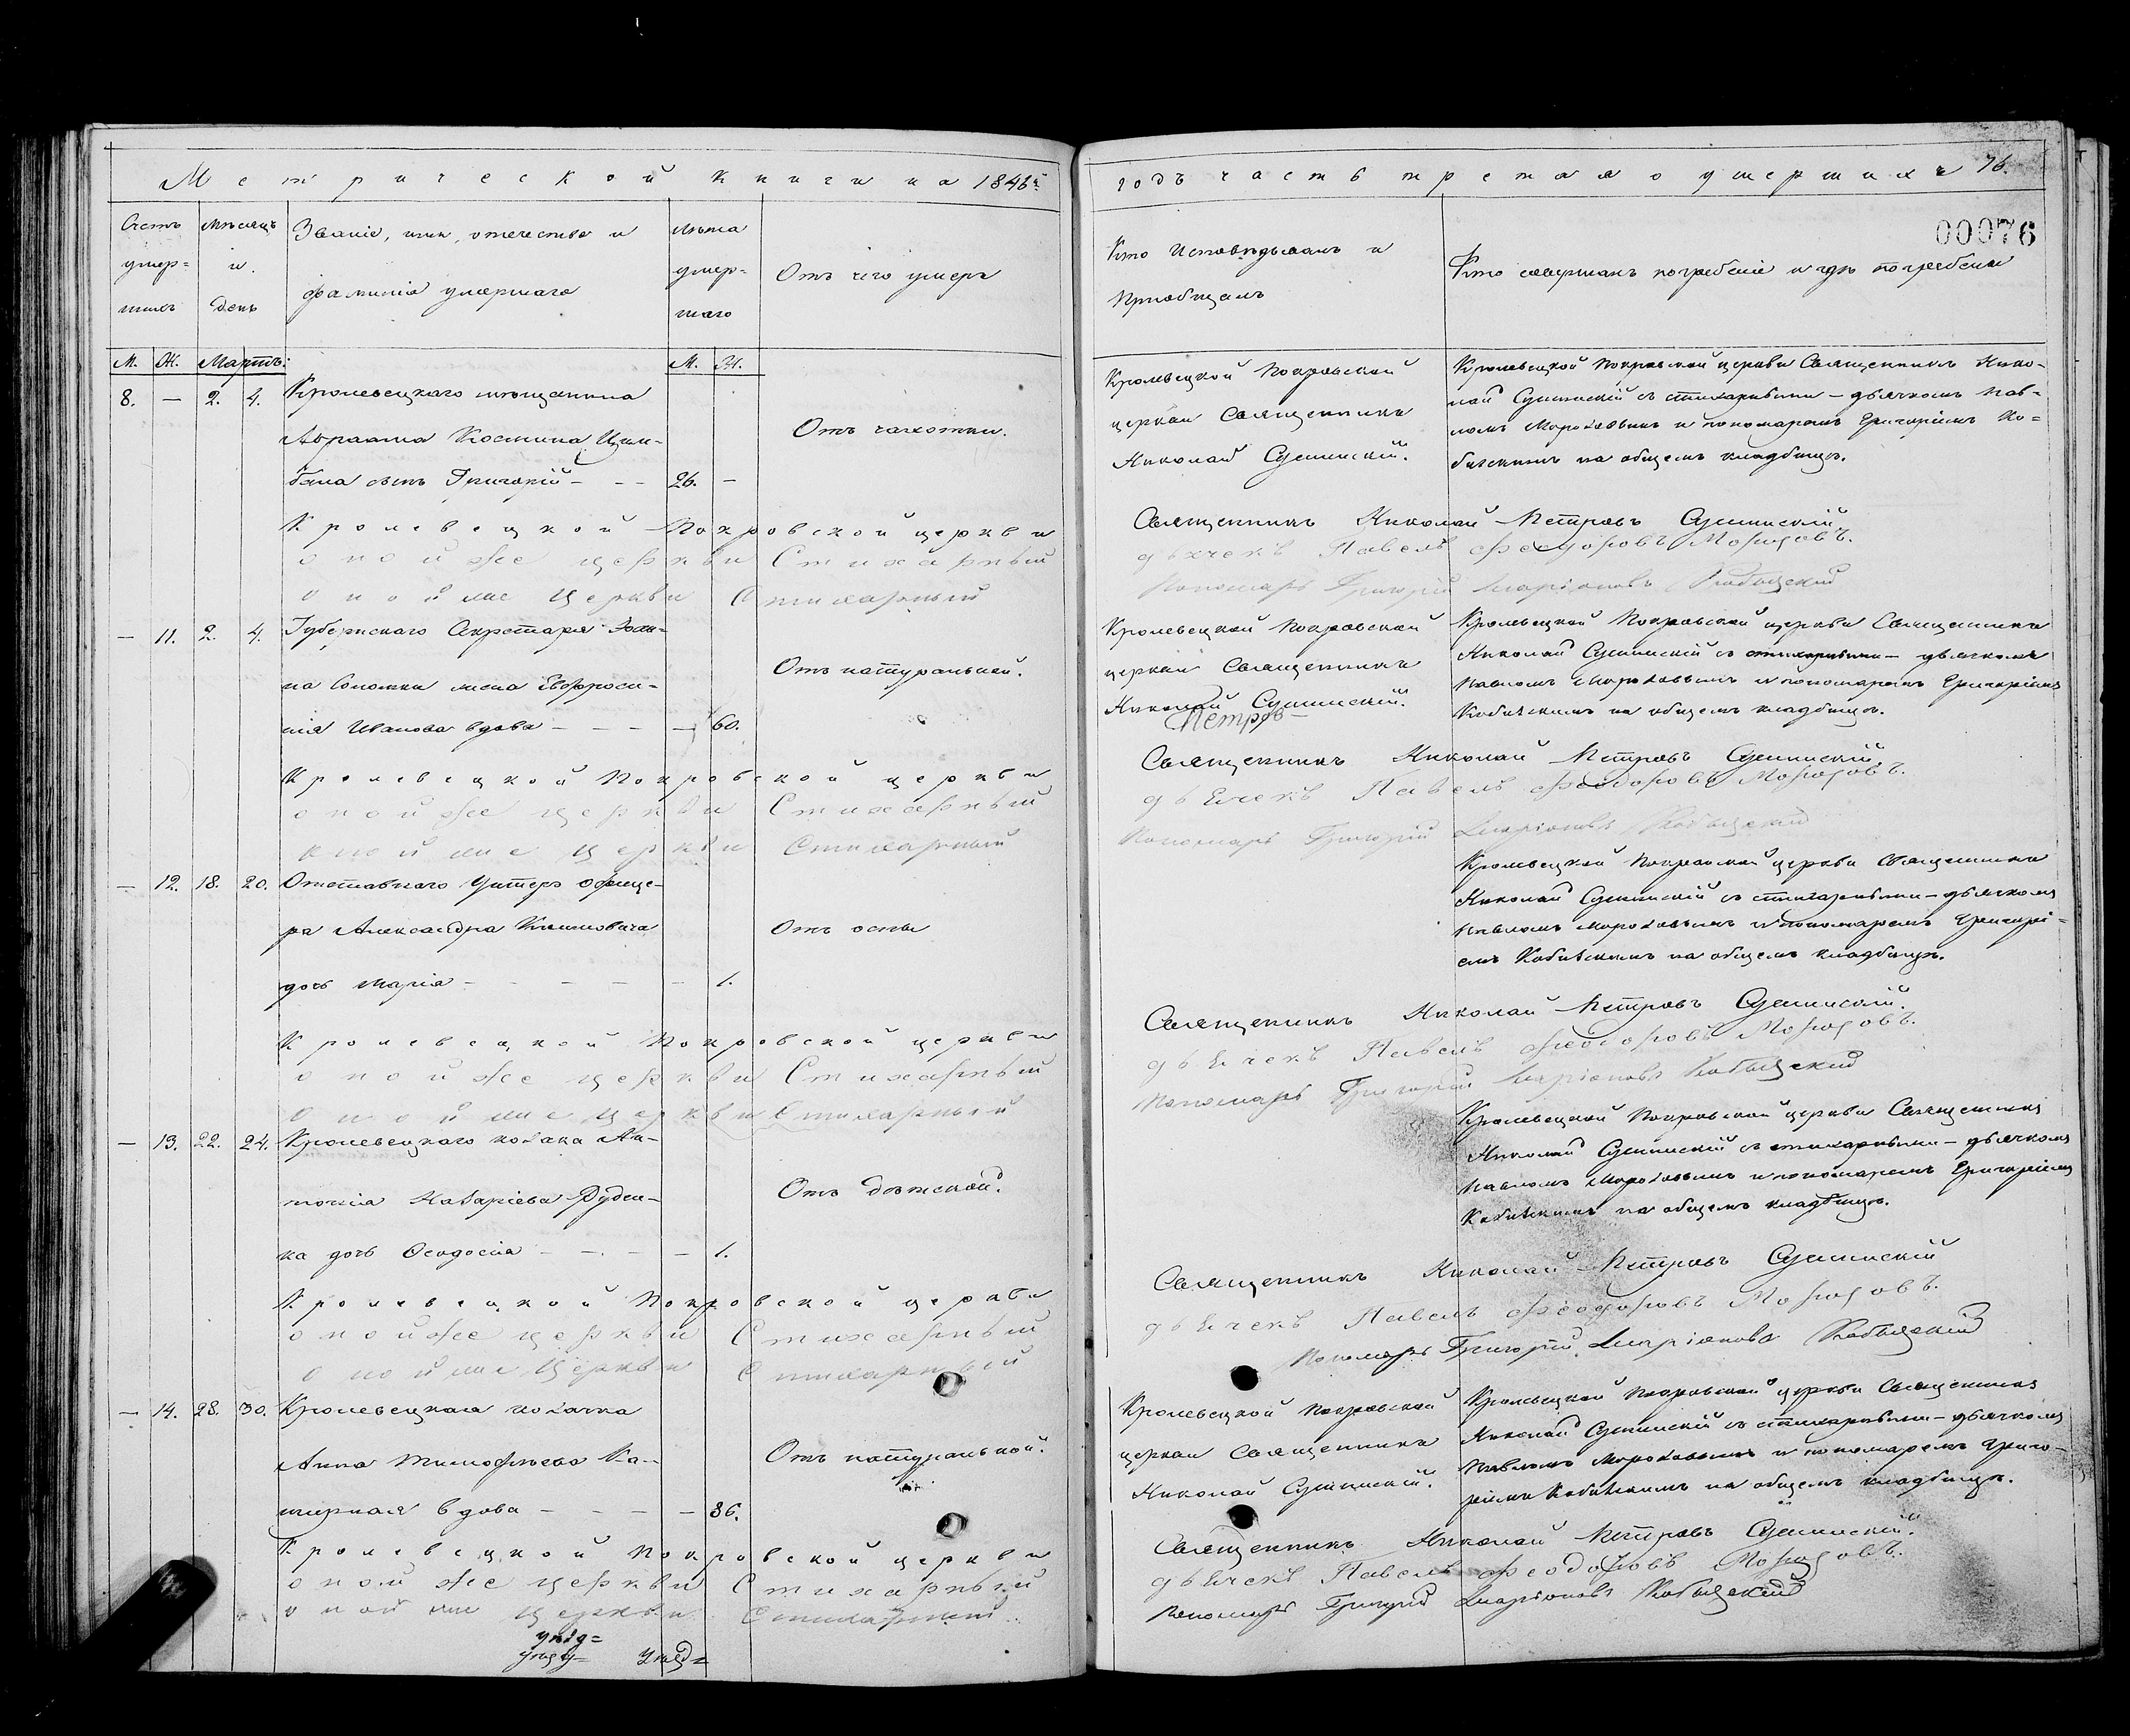 Метрической книги на 1846й
Счетъ умер=шихъ
Мѣсяцъ и день
Званіе, имя, отечество и
фамилія умершаго
лѣта умер=шаго
Отъ чего умеръ
М. Ж. Мартъ: М. Ж.
8. — 2. 4. Кролевецкаго мѣщанина
Авраама Костина
бала сынъ Григорій — — — 26. —
Отъ чахотки.
Кролевецкой Покровской церкви
оной же церкви Стихарный
оной же церкви Стихарный
— 11. 2. 4. Губернскаго Секретаря Іоан-
на жена Евфроси-
нія Иванова вдова — — — — 60.
Отъ натуральной.
Кролевецкой Покровской церкви
оной же церкви Стихарный
оной же церкви Стихарный
— 12. 18. 20. Отставнаго Унтеръ офице-
ра Александра
дочь Марія — — — — — 1.
Отъ оспы
Кролевецкой Покровской церкви
оной же церкви Стихарный
оной же церкви Стихарный
— 13. 22. 24. Кролевецкаго козака Ан-
тонія Назаріева Руден-
ка дочь Ѳеодосія — — — — 1.
Отъ дѣтской.
Кролевецкой Покровской церкви
оной же церкви Стихарный
оной же церкви Стихарный
— 14. 28. 30. Кролевецкая козачка
Анна Тимофѣева Ка-
вдова — — — — 86.
Отъ натуральной.
Кролевецкой Покровской церкви
оной же церкви Стихарный
оной же церкви Стихарный
годъ часть третая о умершихъ 76.
00076
Кто Исповѣдывалъ и
Пріобщалъ
Кто совершалъ погребеніе и гдѣ погребены
Кролевецкой Покровской
церкви Священникъ
Николай Сушинскій.
Кролевецкой Покровской церкви Священникъ Нико-
лай Сушинскій съ стихарными — дьячкомъ Пав-
ломъ Морозовымъ и пономаремъ Григоріемъ Ко=
на общемъ кладбищѣ.
Священникъ Николай Петровъ Сушинскій.
дьячекъ Павелъ Феодоровъ Морозовъ.
Пономарь Григорій Иларіоновъ
Кролевецкой Покровской
церкви Священникъ
Николай Сушинскій.
Петров—
Кролевецкой Покровской церкви Священникъ
Николай Сушинскій съ стихарными — дьячкомъ
Павломъ Морозовымъ и пономаремъ Григоріемъ
на общемъ кладбищѣ.
Священникъ Николай Петровъ Сушинскій.
дьячекъ Павелъ Феодоровъ Морозовъ.
Пономарь Григорій Иларіоновъ
Кролевецкой Покровской церкви Священникъ
Николай Сушинскій съ стихарными — дьячкомъ
Павломъ Морозовымъ и пономаремъ Григорі=
емъ на общемъ кладбищѣ.
Священникъ Николай Петровъ Сушинскій.
дьячекъ Павелъ Феодоровъ Морозовъ.
Пономарь Григорій Иларіоновъ
Кролевецкой Покровской церкви Священникъ
Николай Сушинскій съ стихарными — дьячкомъ
Павломъ Морозовымъ и пономаремъ Григоріемъ
на общемъ кладбищѣ.
Священникъ Николай Петровъ Сушинскій
дьячекъ Павелъ Феодоровъ Морозовъ.
Пономарь Григорій Иларіоновъ
Кролевецкой Покровской
церкви Священникъ
Николай Сушинскій.
Кролевецкой Покровской церкви Священникъ
Николай Сушинскій съ стихарными — дьячкомъ
Павломъ Морозовымъ и пономаремъ Григо-
ріемъ на общемъ кладбищѣ.
Священникъ Николай Петровъ Сушинскій.
дьячекъ Павелъ Феодоровъ Морозовъ.
Пономарь Григорій Иларіоновъ